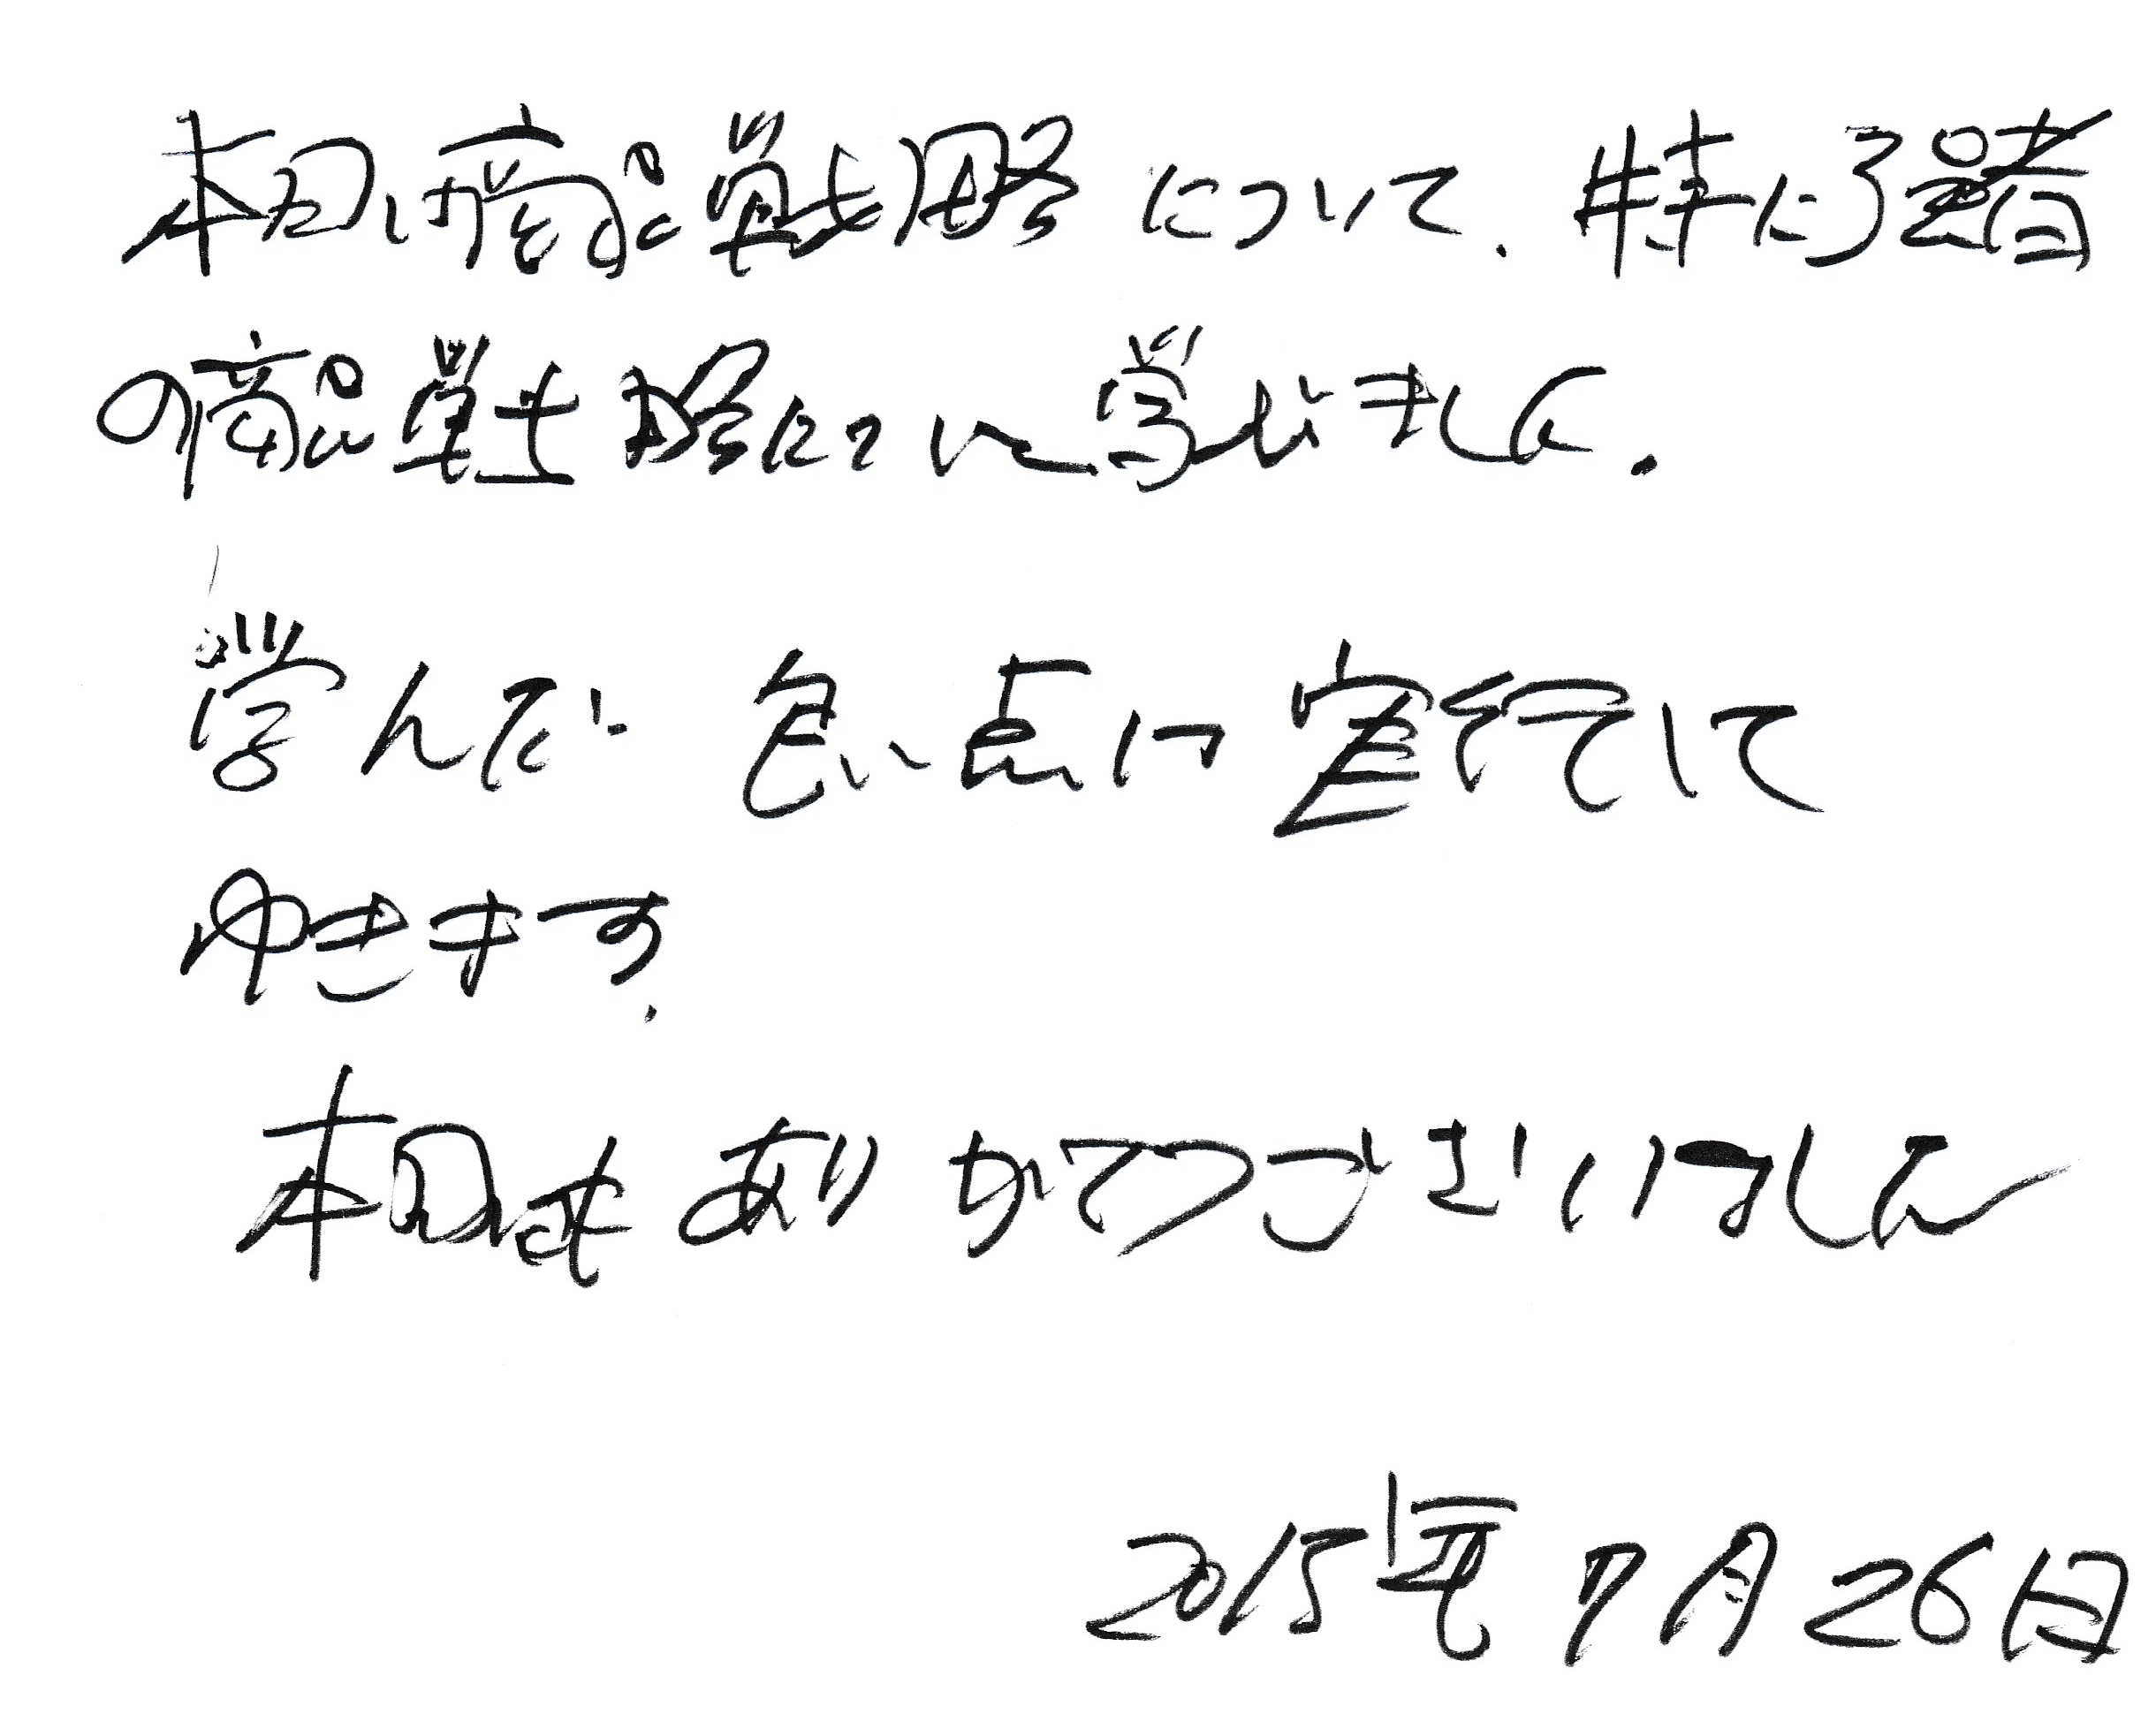 本日は商品戦略について、特に強者
の商品戦略について学びました。
学んだ良い点は実行して
ゆきます。
本日はありがとうございました
2015年7月26日